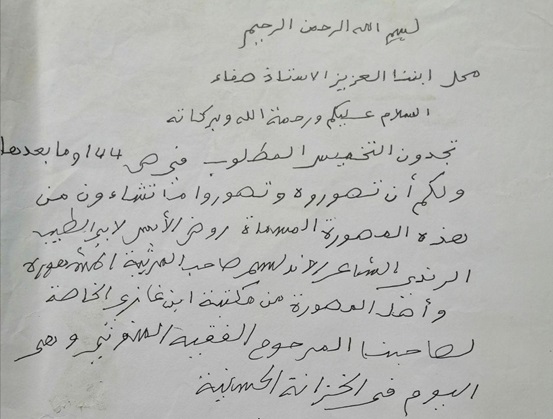 بسم الله الرحمن الرحيم
محل ابننا العزيز الاستاذ صفاء
السلام عليكم ورحمة الله وبركاته
تجدون التخميس المطلوب في ص 144 وما بعدها
ولكم أن تصوروه وتصوروا ما تشاءون من
هذه المصورة المسماة روض الأنس لابي الطيب
الرندي الشاعر الاندلسي صاحب المرثية المشهورة
وأصل المصورة من مكتبة ابن غازي الخاصة
لصاحبنا المرحوم الفقيه المنوني وهي
اليوم في الخزانة الحسنية